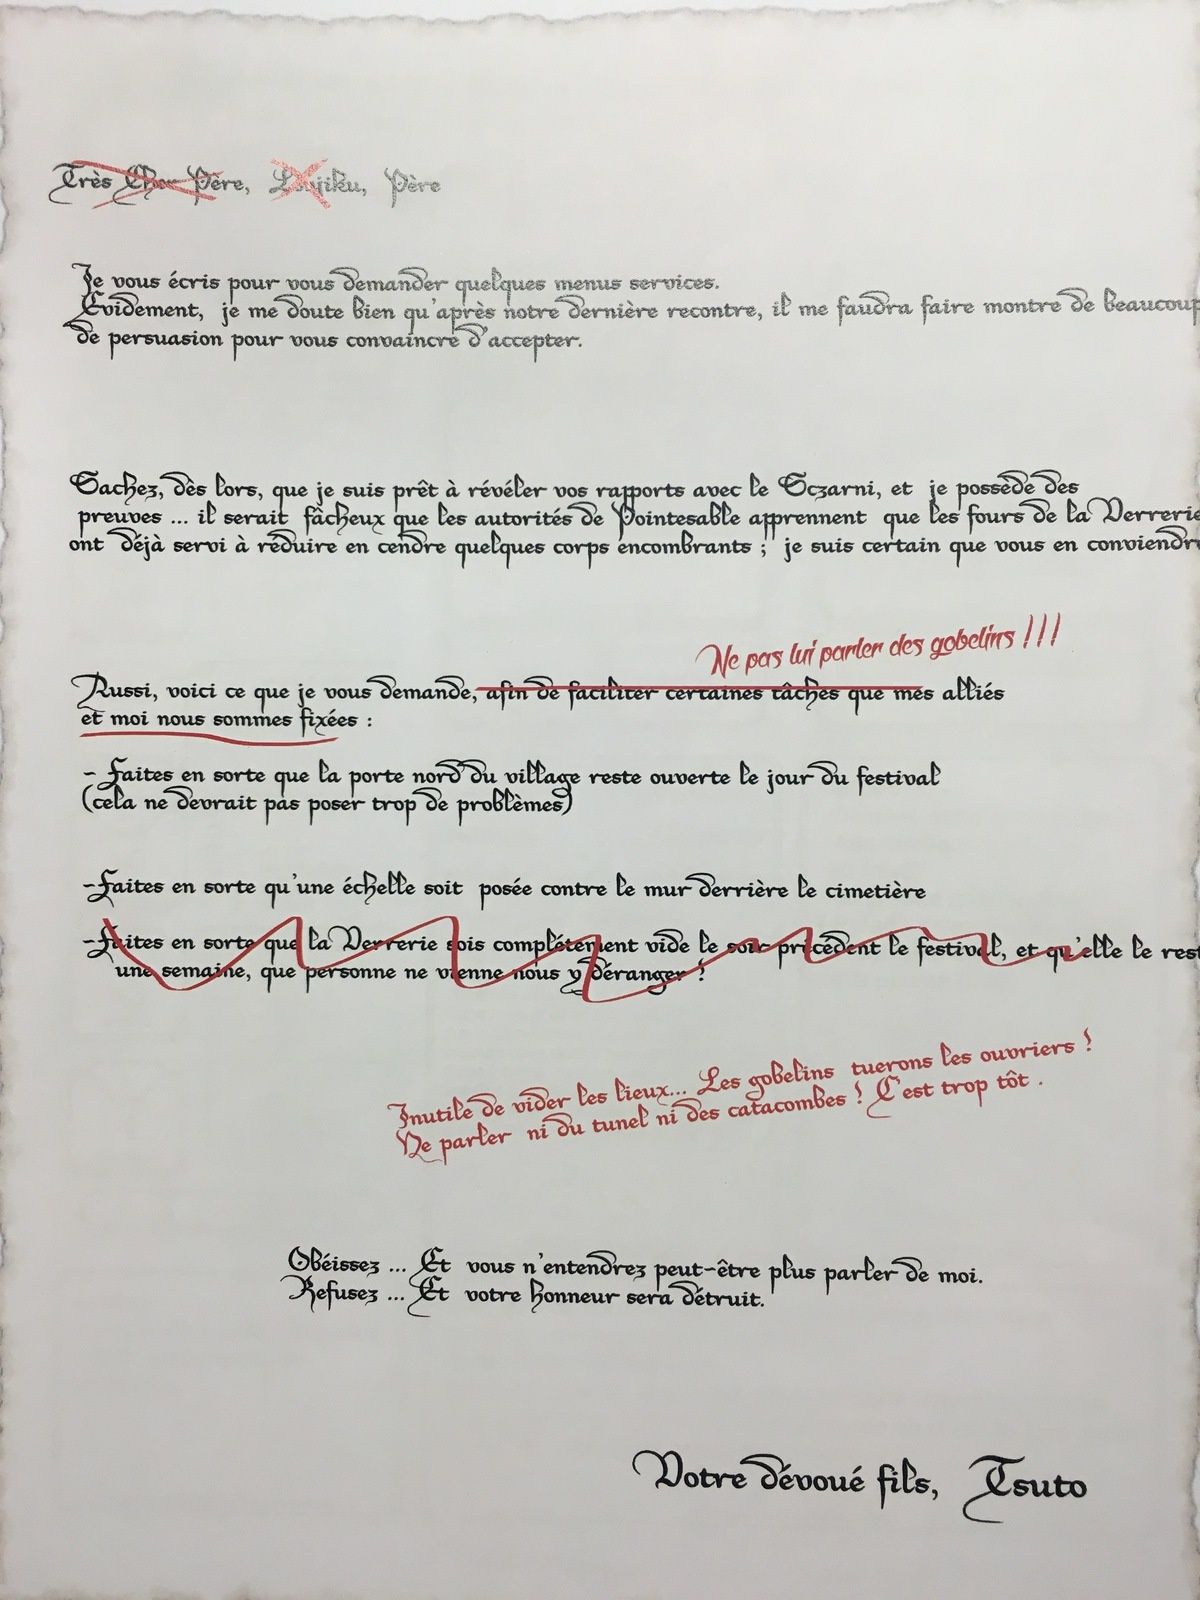 Très Cher Père, Lonjiku, Père
Je vous écris pour vous demander quelques menus services.
Évidement, je me doute bien qu'après notre dernière recontre, il me faudra faire montre de beaucoup
de persuasion pour vous convaincre d'accepter.
Sachez, dès lors, que je suis prêt à révéler vos rapports avec le Sczarni, et je possède des
preuves ... il serait fâcheux que les autorités de Pointesable apprennent que les fours de la Verrerie
ont déjà servi à réduire en cendre quelques corps encombrants ; je suis certain que vous en conviendre
Ne pas lui parler des gobelins !!!
Aussi, voici ce que je vous demande, afin de faciliter certaines tâches que mes alliés
et moi nous sommes fixées :
- Faites en sorte que la porte nord du village reste ouverte le jour du festival
(cela ne devrait pas poser trop de problèmes)
-Faites en sorte qu'une échelle soit posée contre le mur derrière le cimetière
-Faites en sorte que la Verrerie sois complétement vide le soir précédent le festival, et qu'elle le rest
une semaine, que personne ne vienne nous y déranger !
Inutile de vider les lieux... Les gobelins tuerons les ouvriers !
Ne parler ni du tunel ni des catacombes ! C'est trop tôt .
Obéissez ... Et vous n'entendrez peut-être plus parler de moi.
Refusez ... Et votre honneur sera détruit.
Votre dévoué fils, Tsuto